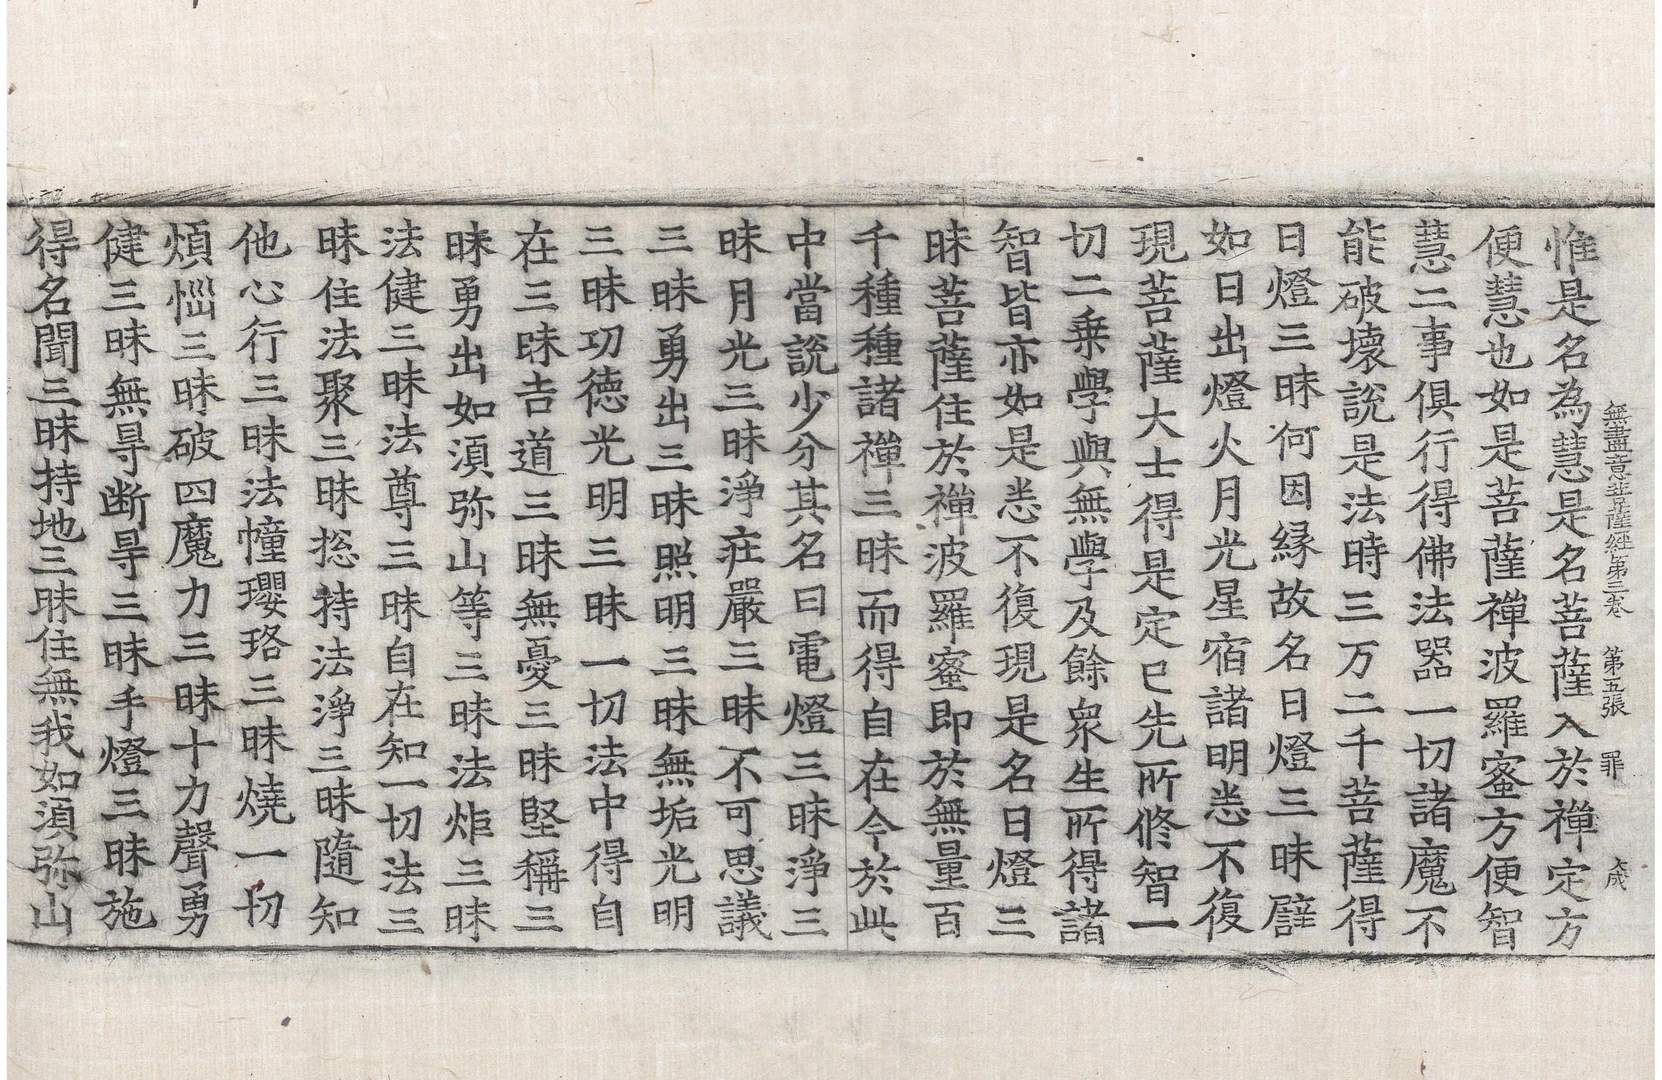 無盡意菩薩經第三卷 第五張 罪
惟是名為慧是名菩薩入於禪定方
便慧也如是菩薩禪波羅蜜方便智
慧二事俱行得佛法器一切諸魔不
能破壞說是法時三万二千菩薩得
日燈三昧何因縁故名日燈三昧譬
如日出燈火月光星宿諸明悉不復
現菩薩大士得是定已先所修智一
切二乗學與無學及餘衆生所得諸
智皆亦如是悉不復現是名日燈三
昧菩薩住於禪波羅蜜即於無量百
千種種諸禪三昧而得自在今於此
中當說少分其名曰電燈三昧淨三
昧月光三昧淨莊嚴三昧不可思議
三昧勇出三昧照明三昧無垢光明
三昧功德光明三昧一切法中得自
在三昧吉道三昧無憂三昧堅稱三
昧勇出如湏弥山等三昧法炬三昧
法健三昧法尊三昧自在知一切法三
昧住法聚三昧捴持法淨三昧隨知
他心行三昧法幢瓔珞三昧燒一切
煩惱三昧破四魔力三昧十力聲勇
健三昧無㝵断㝵三昧手燈三昧施
得名聞三昧持地三昧住無我如湏弥山